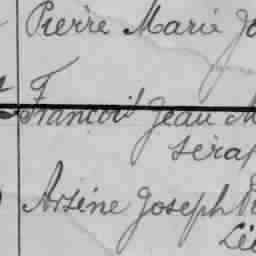 Pierre Marie Jo
François Jean M
Séraf
Arsène Joseph
Lé